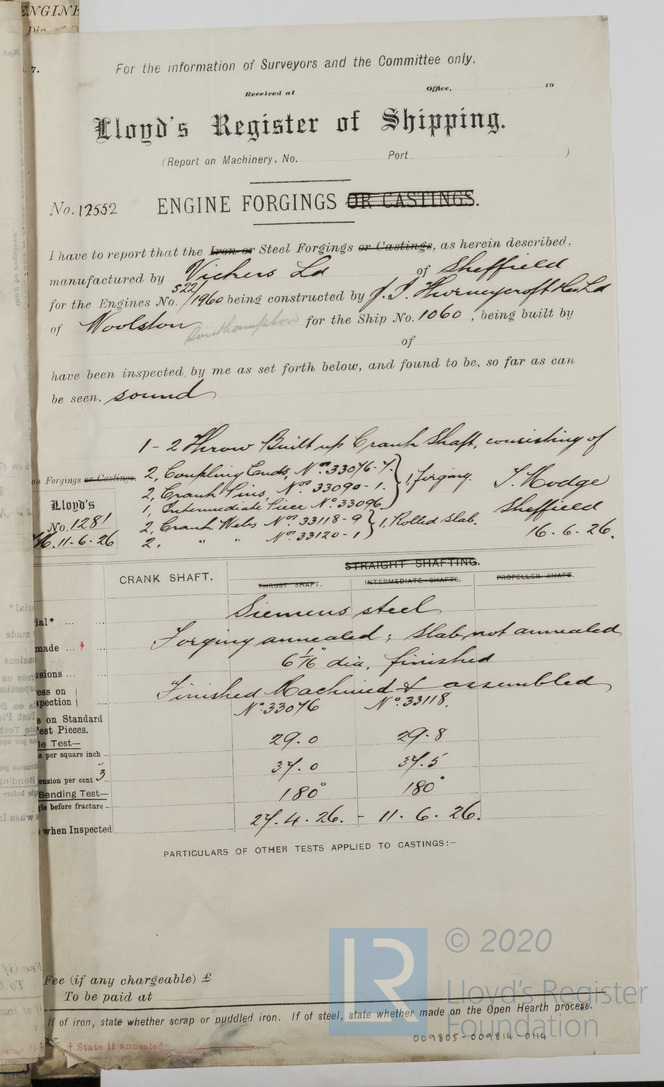 ENGINE
7.
For the information of Surveyors and the Committee only.
Received at Office, 19
Lloyd's Register of Shipping.
(Report on Machinery, No. Port )
No. 17552 ENGINE FORGINGS OR CASTINGS.
I have to report that the Iron or Steel Forgings or Castings, as herein described,
manufactured by Vickers Ld of Sheffield
for the Engines No. 522/1960 being constructed by J. I. Thornycroft & Co Ld
of Woolston Southampton for the Ship No. 1060, being built by
of
have been inspected by me as set forth below, and found to be, so far as can
be seen, sound
1 - 2 Throw Built up Crank Shaft, consisting of
Forgings or Castings 2, Coupling Ends, Nos. 33076-7.
2, Crank Pins, Nos. 33090-1. } 1, forging. T. Hodge
Lloyd's 1, Intermediate Piece No. 33096 Sheffield
No. 1281 2, Crank Webs Nos. 33118-9 } 1, Rolled Slab. 16.6.26.
H. 11-6-26 2, " " Nos. 33120-1
CRANK SHAFT. STRAIGHT SHAFTING.
THRUST SHAFT. INTERMEDIATE SHAFTS. PROPELLER SHAFT.
ial* Siemens steel
made † Forging annealed; Slab not annealed
sions 6 7/16" dia, finished
ess on Finished Machined & assembled
spection
No. 33076 No. 33118.
s on Standard
Test Pieces.
le Test— 29.0 29.8
s per square inch
ension per cent 3" 37.0 37.5
Bending Test— 180° 180°
gle before fracture
when Inspected 27.4.26. - 11.6.26.
PARTICULARS OF OTHER TESTS APPLIED TO CASTINGS:—
Fee (if any chargeable) £
To be paid at
If of iron, state whether scrap or puddled iron. If of steel, state whether made on the Open Hearth process.
† State if annealed
© 2020
Lloyd's Register
Foundation
009805-009814-0114